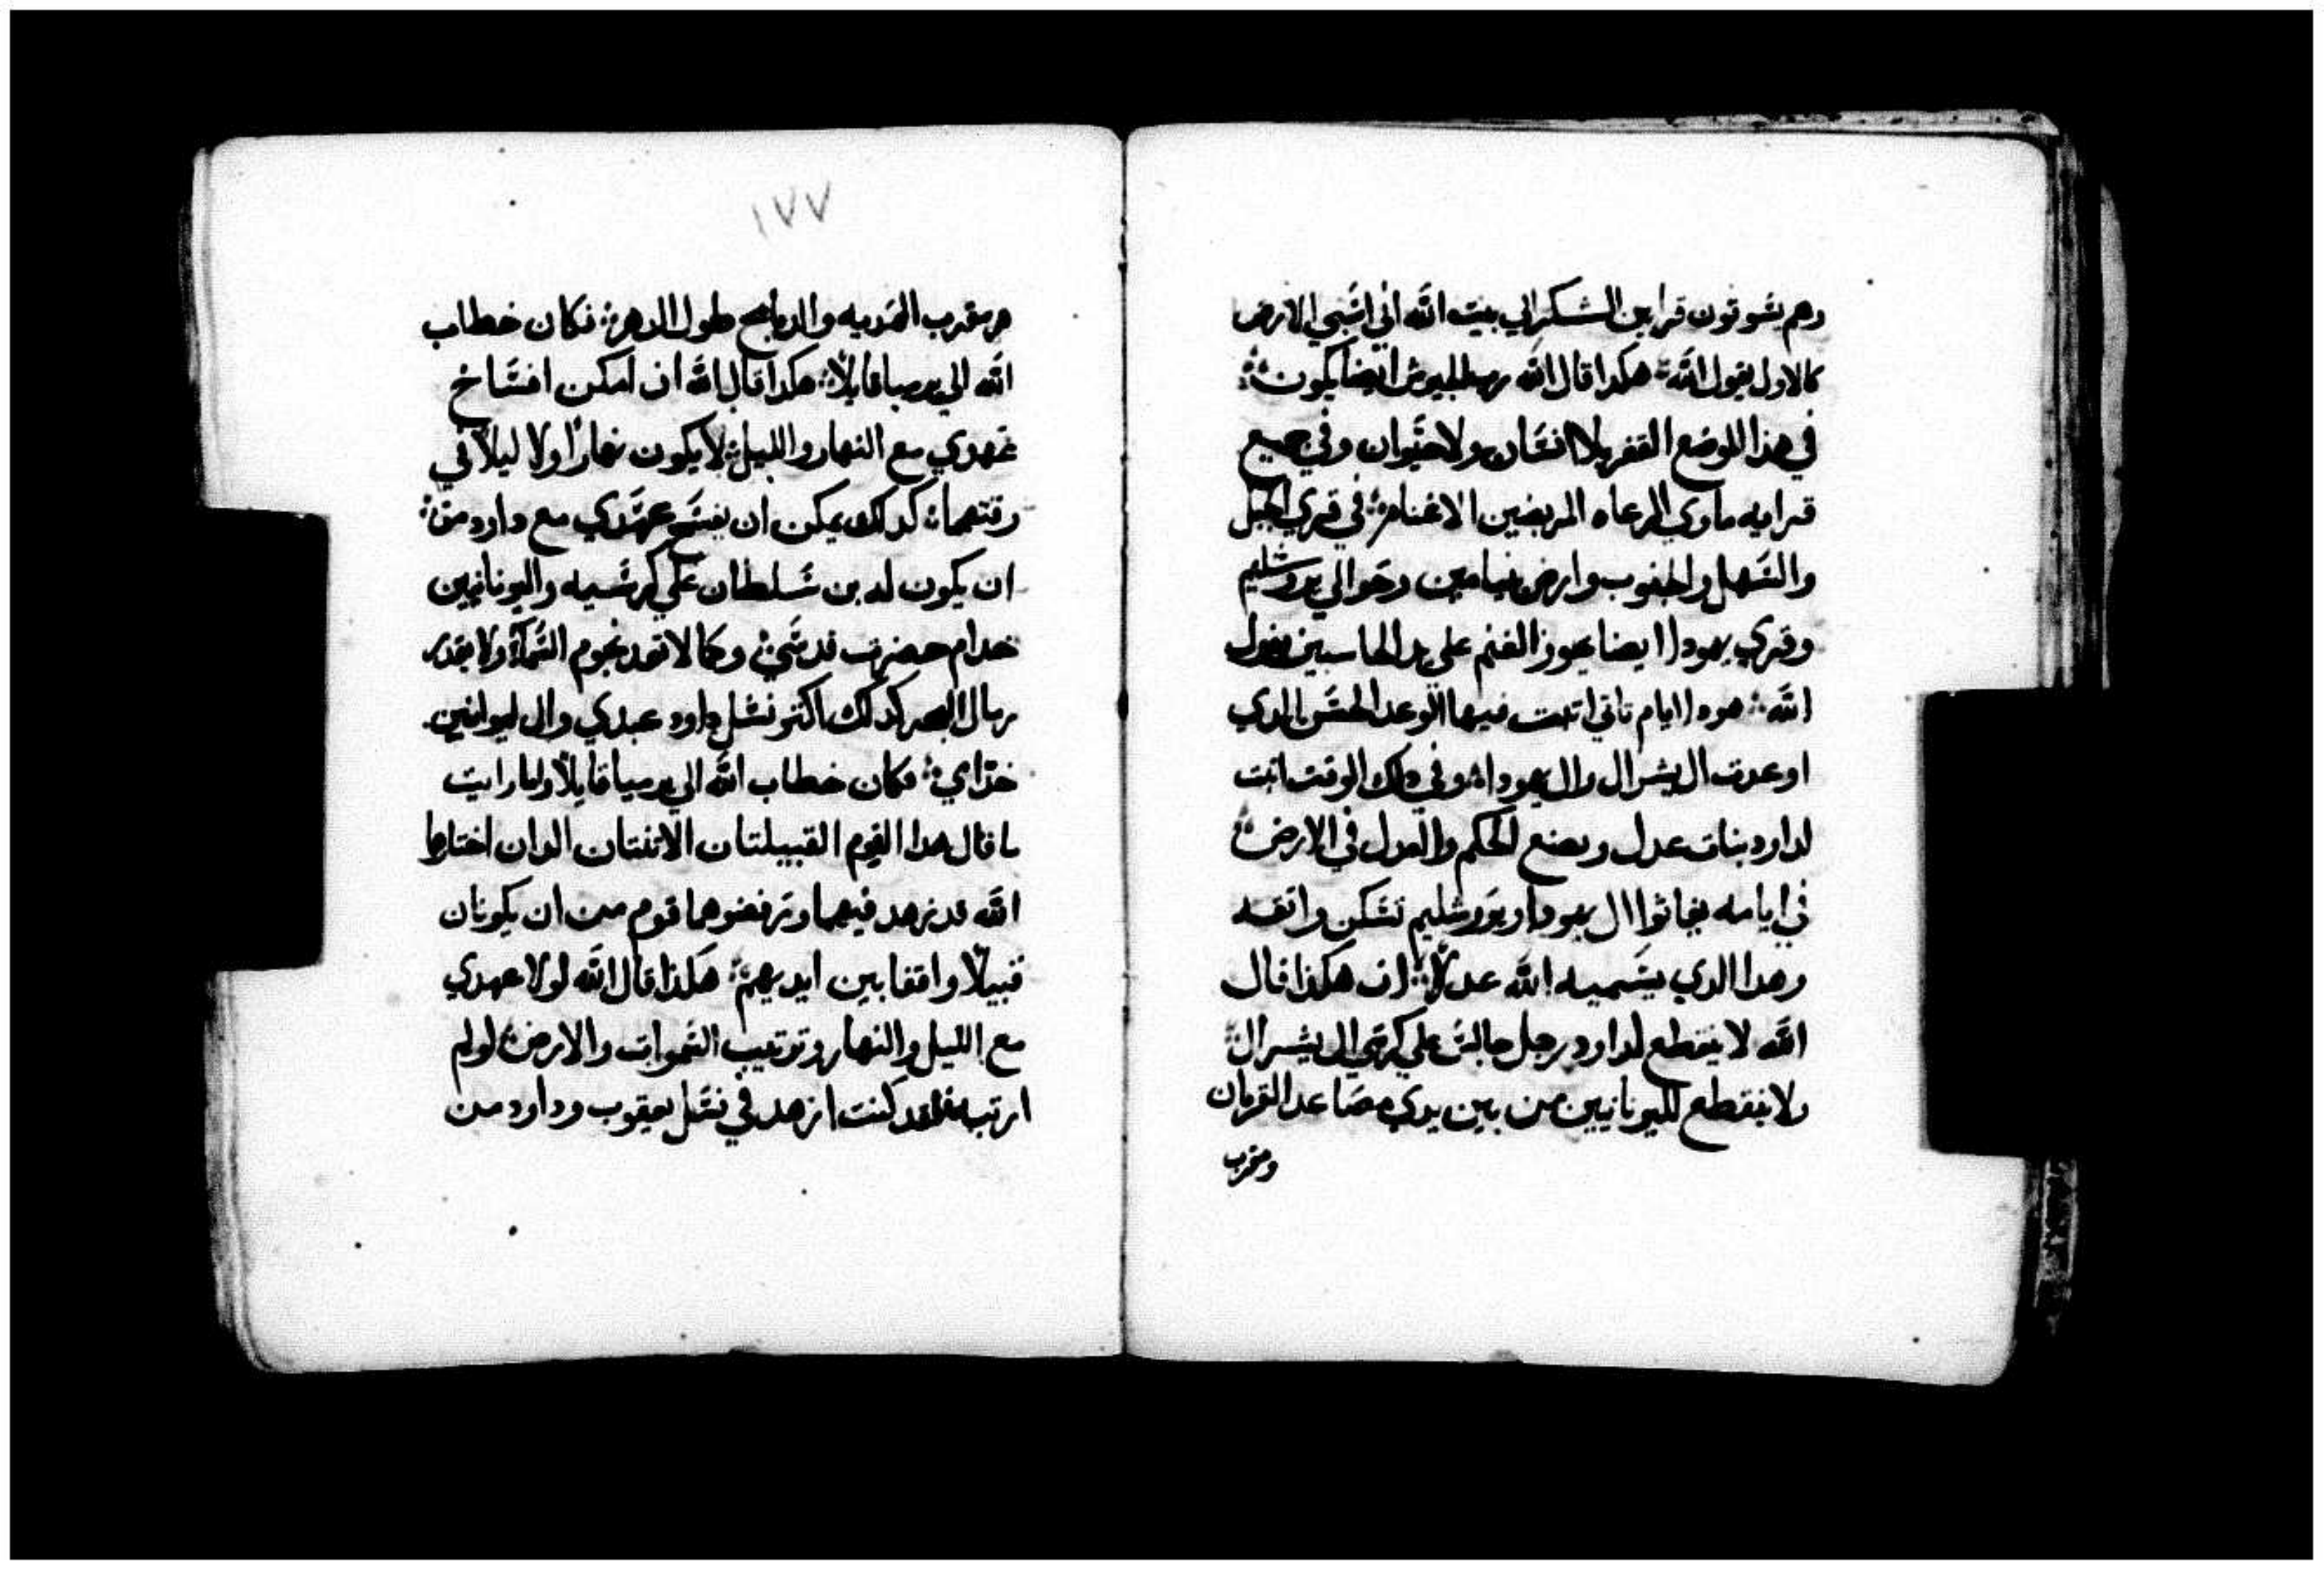 وهم يسوقون قرابين الشكر الي بيت الله اني اسبي الارض
كالاول يقول الله هكدا قال الله رب الجيوش ايضا يكون
في هذا الموضع القفر بلا انسان ولا حيوان وفي جميع
قرايه ماوي الرعاه المربضين الاغنام في قري الجبل
والسهل والجنوب وارض بنيامين وحوالي يروشليم
وقري يهودا ايضا يجوز الغنم علي يد الحاسبين يقول
الله هودا ايام تاتي اتبت فيها الوعد الحسن الدي
اوعدت ال يسرال وال يهودا وفي دلك الوقت انبت
لداود بنات عدل ويصنع الحكم والعدل في الارض
في ايامه يغاثوا ال يهودا ويروشليم تسكن واثقه
وهدا الدي يسميه الله عدلا ان هكذا قال
الله لا ينقطع لداود رجل جالس علي كرسي ال يسرال
ولا ينقطع لليونانيين من بين يدي مصاعد القربان
ومقرب
١٧٧
ومقرب الهديه والدبايح طول الدهر فكان خطاب
الله الي يرميا قايلا هكدا قال الله ان امكن افساخ
عهدي مع النهار والليل لا يكون نهارا ولا ليلا في
وقتهما كدلك يمكن ان يفسخ عهدي مع داود من
ان يكون له بن سلطان علي كرسيه واليونانيين
خدام حضرت قدسي وكما لا تعد نجوم السمآ ولا يقدر
رمال البحر كدلك اكتر نسل داود عبدي وال ليوانيين
خدامي فكان خطاب الله الي يرميا قايلا اما رايت
ما قال هدا القوم القبيلتان الاتنتان الدان اختارها
الله قد زهد فيهما وترفضوهما قوم من ان يكونان
قبيلا واقفا بين ايديهم هكذا قال الله لولا عهدي
مع الليل والنهار وترتيب السموات والارض لو لم
ارتبه لقد كنت ازهد في نسل يعقوب وداود من